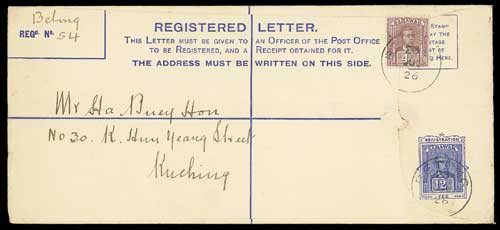 Betong
REGD. No. 54
REGISTERED LETTER.
THIS LETTER MUST BE GIVEN TO AN OFFICER OF THE POST OFFICE
TO BE REGISTERED, AND A RECEIPT OBTAINED FOR IT.
THE ADDRESS MUST BE WRITTEN ON THIS SIDE.
STAMP
AY THE
STAGE
ST BE
HERE.
SARAWAK
26
Mr Sta. Buey Hon
No 30. K. Hun Yeang Street
Kuching
REGISTRATION
12
FEE
23
26